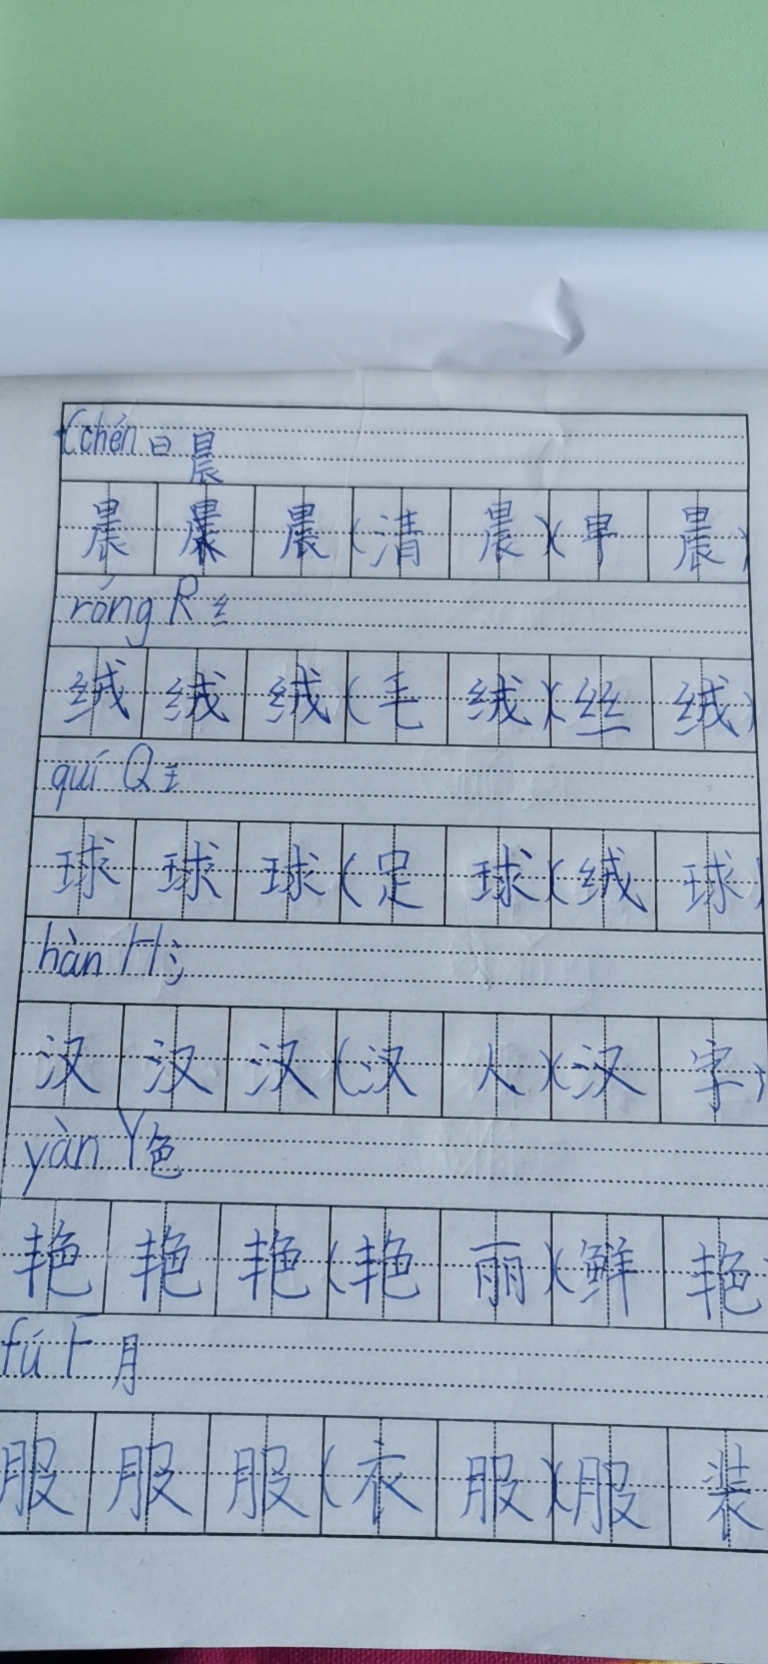 Cchén 日 晨
晨 晨 晨 (清 晨)(早 晨)
róng R 纟
绒 绒 绒 (毛 绒)(丝 绒)
quí Q 王
球 球 球 (足 球)(绒 球)
hàn H 氵
汉 汉 汉 (汉 人)(汉 字)
yàn Y 色
艳 艳 艳 (艳 丽)(鲜 艳
fú F 月
服 服 服 (衣 服)(服 装